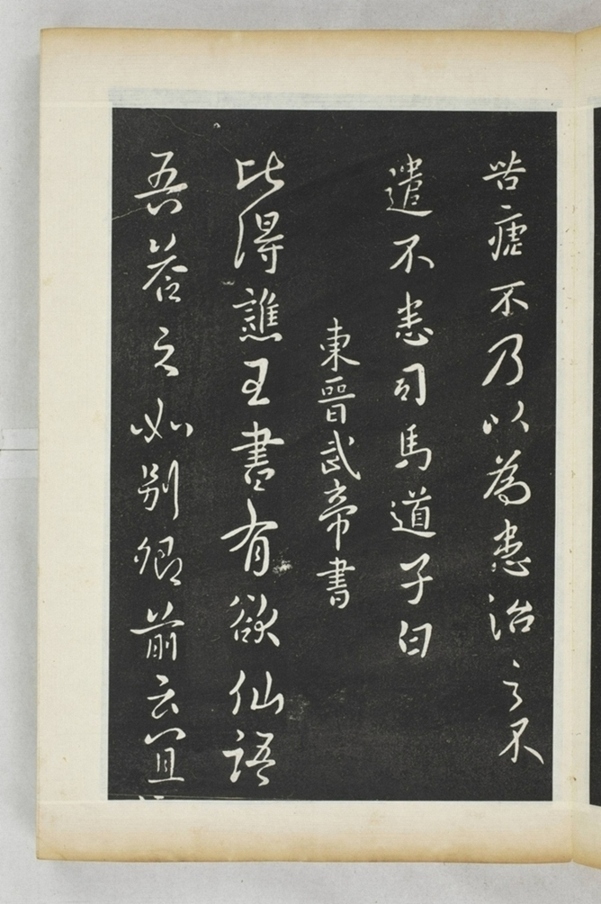 皆瘧不乃以為患治之不
遣不悉司馬道子白
東晉武帝書
比得譙王書有欲仙語
吾答之如別卿前云宜